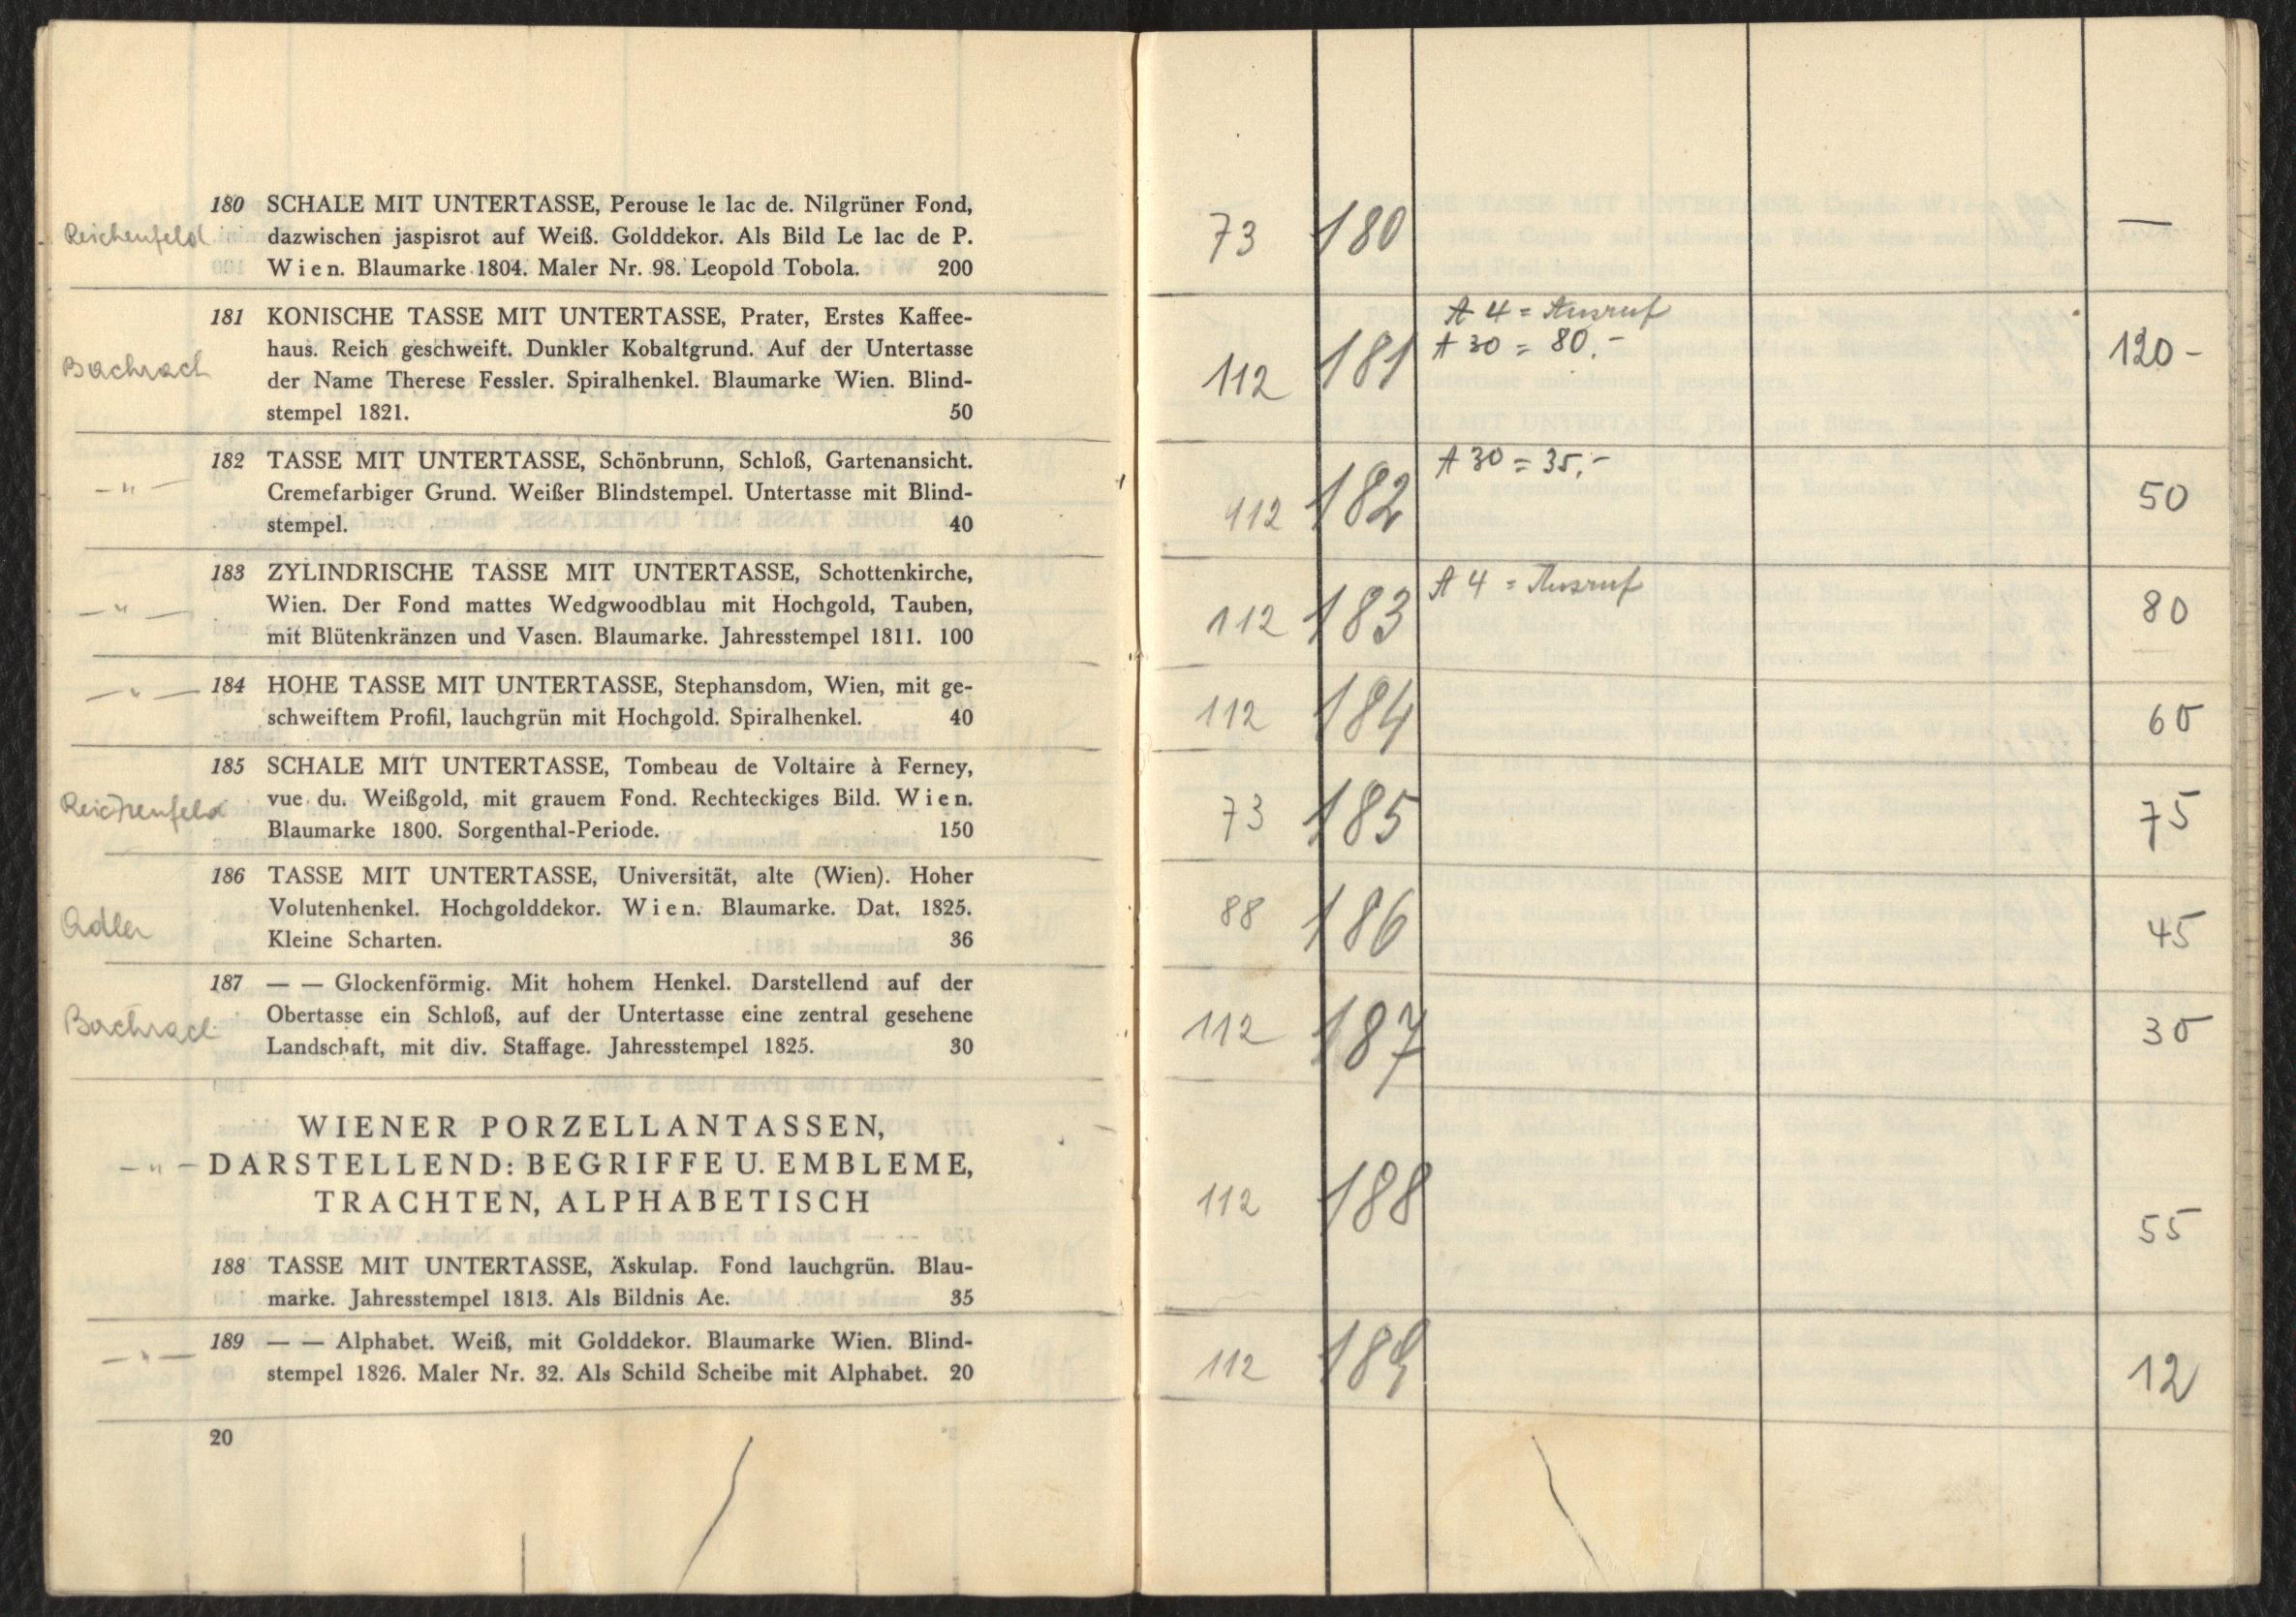 180 SCHALE MIT UNTERTASSE, Perouse le lac de. Nilgrüner Fond,
Reichenfeld dazwischen jaspisrot auf Weiß. Golddekor. Als Bild Le lac de P.
Wien. Blaumarke 1804. Maler Nr. 98. Leopold Tobola. 200
181 KONISCHE TASSE MIT UNTERTASSE, Prater, Erstes Kaffee-
haus. Reich geschweift. Dunkler Kobaltgrund. Auf der Untertasse
Bachrach der Name Therese Fessler. Spiralhenkel. Blaumarke Wien. Blind-
stempel 1821. 50
182 TASSE MIT UNTERTASSE, Schönbrunn, Schloß, Gartenansicht.
— " — Cremefarbiger Grund. Weißer Blindstempel. Untertasse mit Blind-
stempel. 40
183 ZYLINDRISCHE TASSE MIT UNTERTASSE, Schottenkirche,
— " — Wien. Der Fond mattes Wedgwoodblau mit Hochgold, Tauben,
mit Blütenkränzen und Vasen. Blaumarke. Jahresstempel 1811. 100
— " — 184 HOHE TASSE MIT UNTERTASSE, Stephansdom, Wien, mit ge-
schweiftem Profil, lauchgrün mit Hochgold. Spiralhenkel. 40
185 SCHALE MIT UNTERTASSE, Tombeau de Voltaire à Ferney,
Reichenfeld vue du. Weißgold, mit grauem Fond. Rechteckiges Bild. Wien.
Blaumarke 1800. Sorgenthal-Periode. 150
186 TASSE MIT UNTERTASSE, Universität, alte (Wien). Hoher
Adler Volutenhenkel. Hochgolddekor. Wien. Blaumarke. Dat. 1825.
Kleine Scharten. 36
187 — — Glockenförmig. Mit hohem Henkel. Darstellend auf der
Bachrach Obertasse ein Schloß, auf der Untertasse eine zentral gesehene
Landschaft, mit div. Staffage. Jahresstempel 1825. 30
WIENER PORZELLANTASSEN,
— " — DARSTELLEND: BEGRIFFE U. EMBLEME,
TRACHTEN, ALPHABETISCH
188 TASSE MIT UNTERTASSE, Äskulap. Fond lauchgrün. Blau-
marke. Jahresstempel 1813. Als Bildnis Ae. 35
189 — — Alphabet. Weiß, mit Golddekor. Blaumarke Wien. Blind-
— " — stempel 1826. Maler Nr. 32. Als Schild Scheibe mit Alphabet. 20
20
73 180 —
A 4 = Ausruf
A 30 = 80.-
112 181 120-
A 30 = 35.-
112 182 50
A 4 = Ausruf
112 183 80
112 184 60
73 185 75
88 186 45
112 187 30
112 188 55
112 189 12